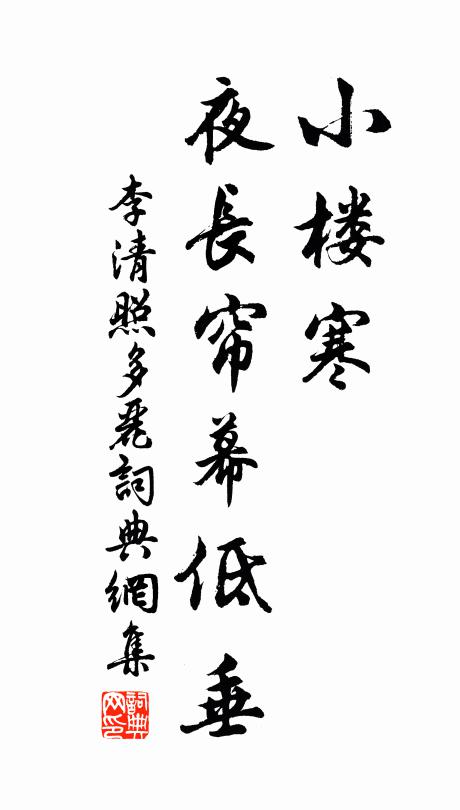 小楼寒
夜長帘幕低垂
李清照多麗詞典網集
詞典网印